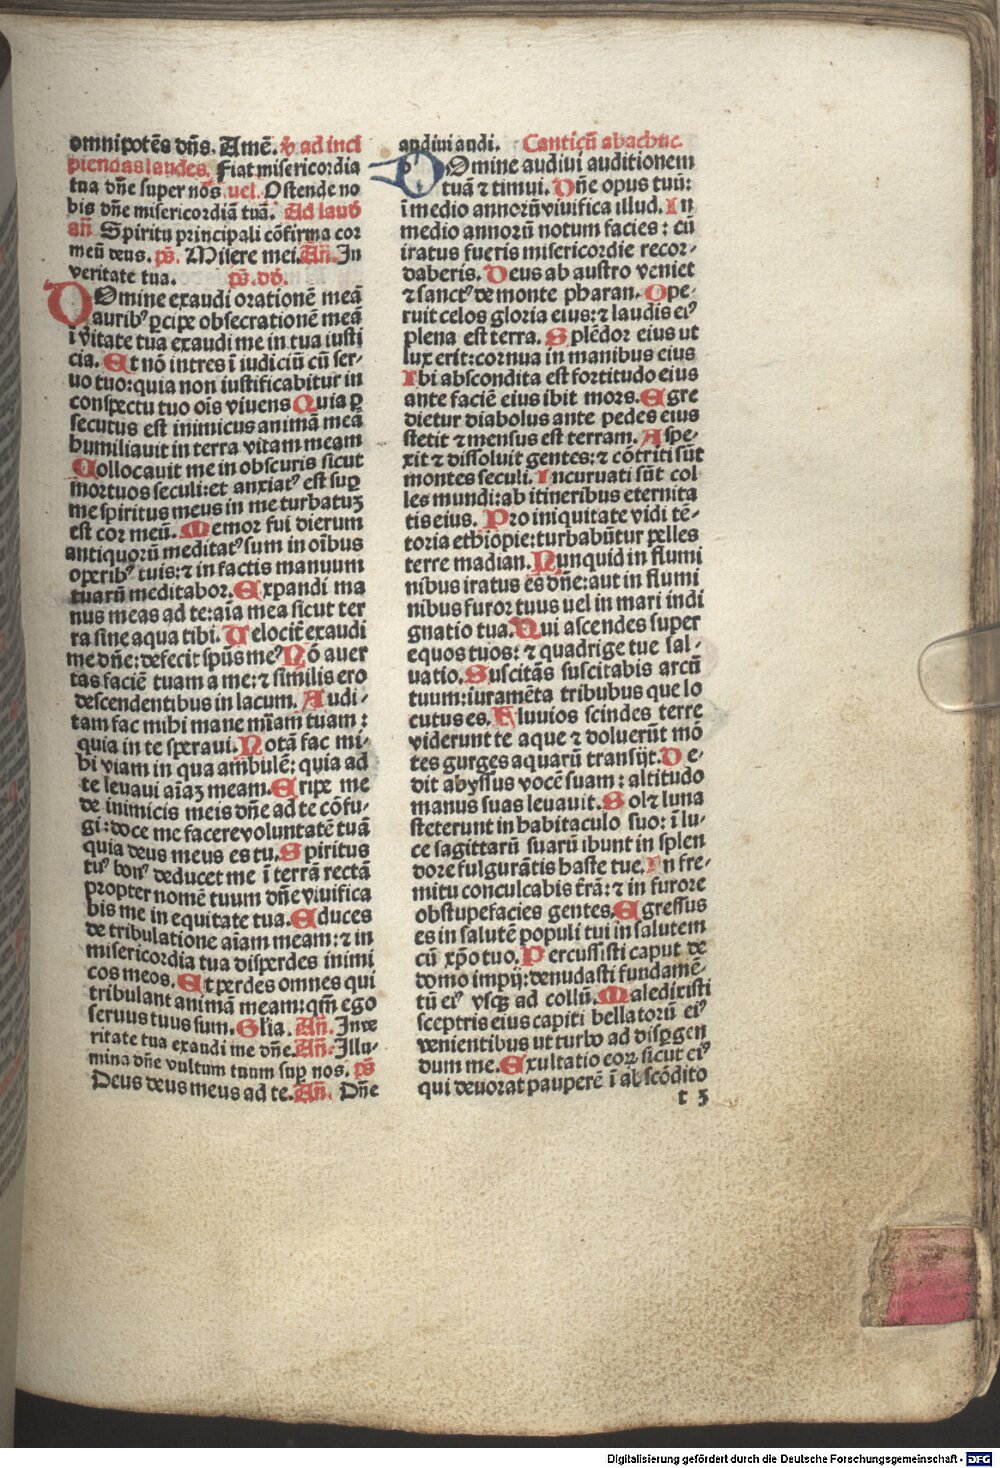 omnipotẽs dñs. Amẽ. v̄ ad inci
piendas laudes. Fiat misericordia
tua dñe super nos̃ uel. Ostende no
bis dñe misericordiã tuã. Ad laud̃
añ Spiritu principali cõfirma cor
meũ deus. ps̃. Misere mei. Añ. In
veritate tua. ps̃. dd̃.
DOmine exaudi orationẽ meã
auribꝰ ꝑcipe obsecrationẽ meã
ĩ vitate tua exaudi me in tua iusti
cia. Et nõ intres ĩ iudiciũ cũ ser-
uo tuo: quia non iustificabitur in
conspectu tuo oĩs viuens Quia ꝑ
secutus est inimicus animã meã
humiliauit in terra vitam meam
Collocauit me in obscuris sicut
mortuos seculi: et anxiatꝰ est suꝑ
me spiritus meus in me turbatuʒ
est cor meũ. Memor fui dierum
antiquorũ meditatꝰ sum in oĩbus
operibꝰ tuis: ⁊ in factis manuum
tuarũ meditabor. Expandi ma
nus meas ad te: aĩa mea sicut ter
ra sine aqua tibi. Uelocit̃ exaudi
me dñe: defecit spũs meꝰ Nõ auer
tas faciẽ tuam a me: ⁊ similis ero
descendentibus in lacum. Audi-
tam fac mihi mane mĩam tuam:
quia in te speraui. Notã fac mi-
hi viam in qua ambulẽ: quia ad
te leuaui aĩaʒ meam. Eripe me
de inimicis meis dñe ad te cõfu-
gi: doce me facere voluntatẽ tuã
quia deus meus es tu. Spiritus
tuꝰ bonꝰ deducet me ĩ terrã rectã
propter nomẽ tuum dñe viuifica
bis me in equitate tua. Educes
de tribulatione aĩam meam: ⁊ in
misericordia tua disperdes inimi
cos meos. Et perdes omnes qui
tribulant animã meam: qm̃ ego
seruus tuus sum. Glia. Añ. In ve
ritate tua exaudi me dñe. Añ. Illu-
mina dñe vultum tuum suꝑ nos. ps̃
Deus deus meus ad te. Añ. Dñe
audiui audi. Canticũ abachuc.
DOmine audiui auditionem
tuã ⁊ timui. Dñe opus tuũ:
ĩ medio annorũ viuifica illud. In
medio annorũ notum facies: cũ
iratus fueris misericordie recor-
daberis. Deus ab austro veniet
⁊ sanctꝰ de monte pharan. Ope-
ruit celos gloria eius: ⁊ laudis eiꝰ
plena est terra. Splẽdor eius ut
lux erit: cornua in manibus eius
Ibi abscondita est fortitudo eius
ante faciẽ eius ibit mors. Egre
dietur diabolus ante pedes eius
stetit ⁊ mensus est terram. Aspe-
xit ⁊ dissoluit gentes: ⁊ cõtriti sũt
montes seculi. Incuruati sũt col
les mundi: ab itineribus eternita
tis eius. Pro iniquitate vidi tẽ-
toria ethiopie: turbabũtur pelles
terre madian. Nunquid in flumi
nibus iratus es dñe: aut in flumi
nibus furor tuus uel in mari indi
gnatio tua. Qui ascendes super
equos tuos: ⁊ quadrige tue sal-
uatio. Suscitãs suscitabis arcũ
tuum: iuramẽta tribubus que lo
cutus es. Fluuios scindes terre
viderunt te aque ⁊ doluerũt mõ
tes gurges aquarũ transijt. De-
dit abyssus vocẽ suam: altitudo
manus suas leuauit. Sol ⁊ luna
steterunt in habitaculo suo: ĩ lu-
ce sagittarũ suarũ ibunt in splen
dore fulgurãtis haste tue. In fre-
mitu conculcabis t̃rã: ⁊ in furore
obstupefacies gentes. Egressus
es in salutẽ populi tui in salutem
cũ xp̃o tuo. Percussisti caput de
domo impij: denudasti fundamẽ-
tũ eiꝰ vsqʒ ad collũ. Maledixisti
sceptris eius capiti bellatorũ eiꝰ
venientibus ut turbo ad disꝑgen
dum me. Exultatio eoꝝ sicut eiꝰ
qui deuorat pauperẽ ĩ abscõdito
t 3
Digitalisierung gefördert durch die Deutsche Forschungsgemeinschaft - DFG